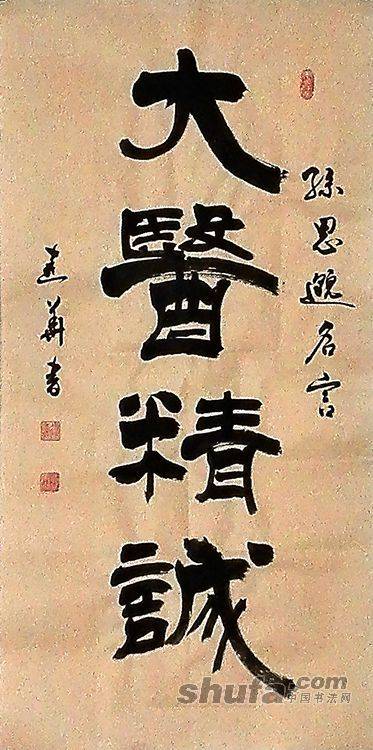 孫思邈名言
大醫精誠
建華書
shufa.com
中国书法网